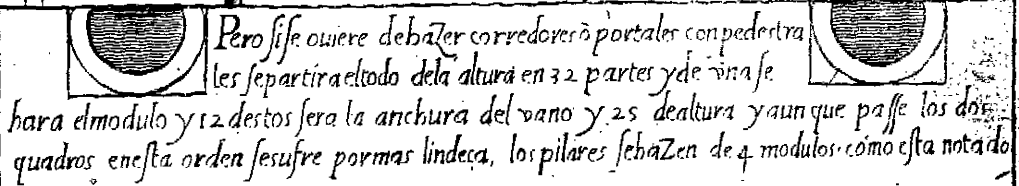 Pero si se ouiere de hazer corredores ò portales con pedestra
les se partira el todo dela altura en 32 partes y de vna se
hara el modulo y 12 destos sera la anchura del vano y 25 de altura y aun que passe los dos
quadros en esta orden se sufre por mas lindeça, los pilares se hazen de 4 modulos como esta notado